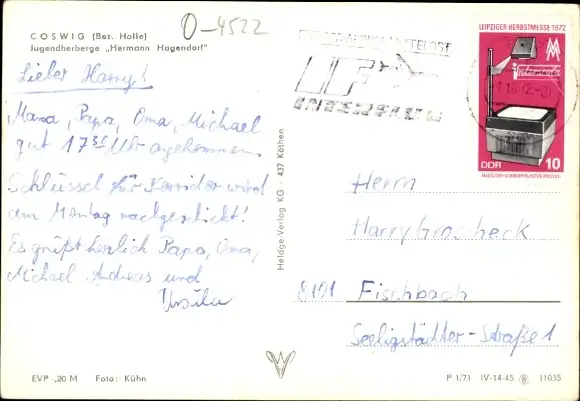 O-4522
COSWIG (Bez. Halle)
Jugendherberge „Hermann Hagendorf"
Lieber Harry!
Mama, Papa, Oma, Michael
gut 17³⁵ Uhr angekommen.
Schlüssel für Korridor wird
am Montag nachgeschickt!
Es grüßt herzlich Papa, Oma,
Michael Andreas und
Ursula
EVP -,20 M Foto: Kühn
Heldge-Verlag KG · 437 Köthen
IF
INTERFLUG
LEIPZIGER HERBSTMESSE 1972
DDR 10
Herrn
Harry Groscheck
8101 Fischbach
Seeligstädter-Straße 1
P 1/71 IV-14-45 11035